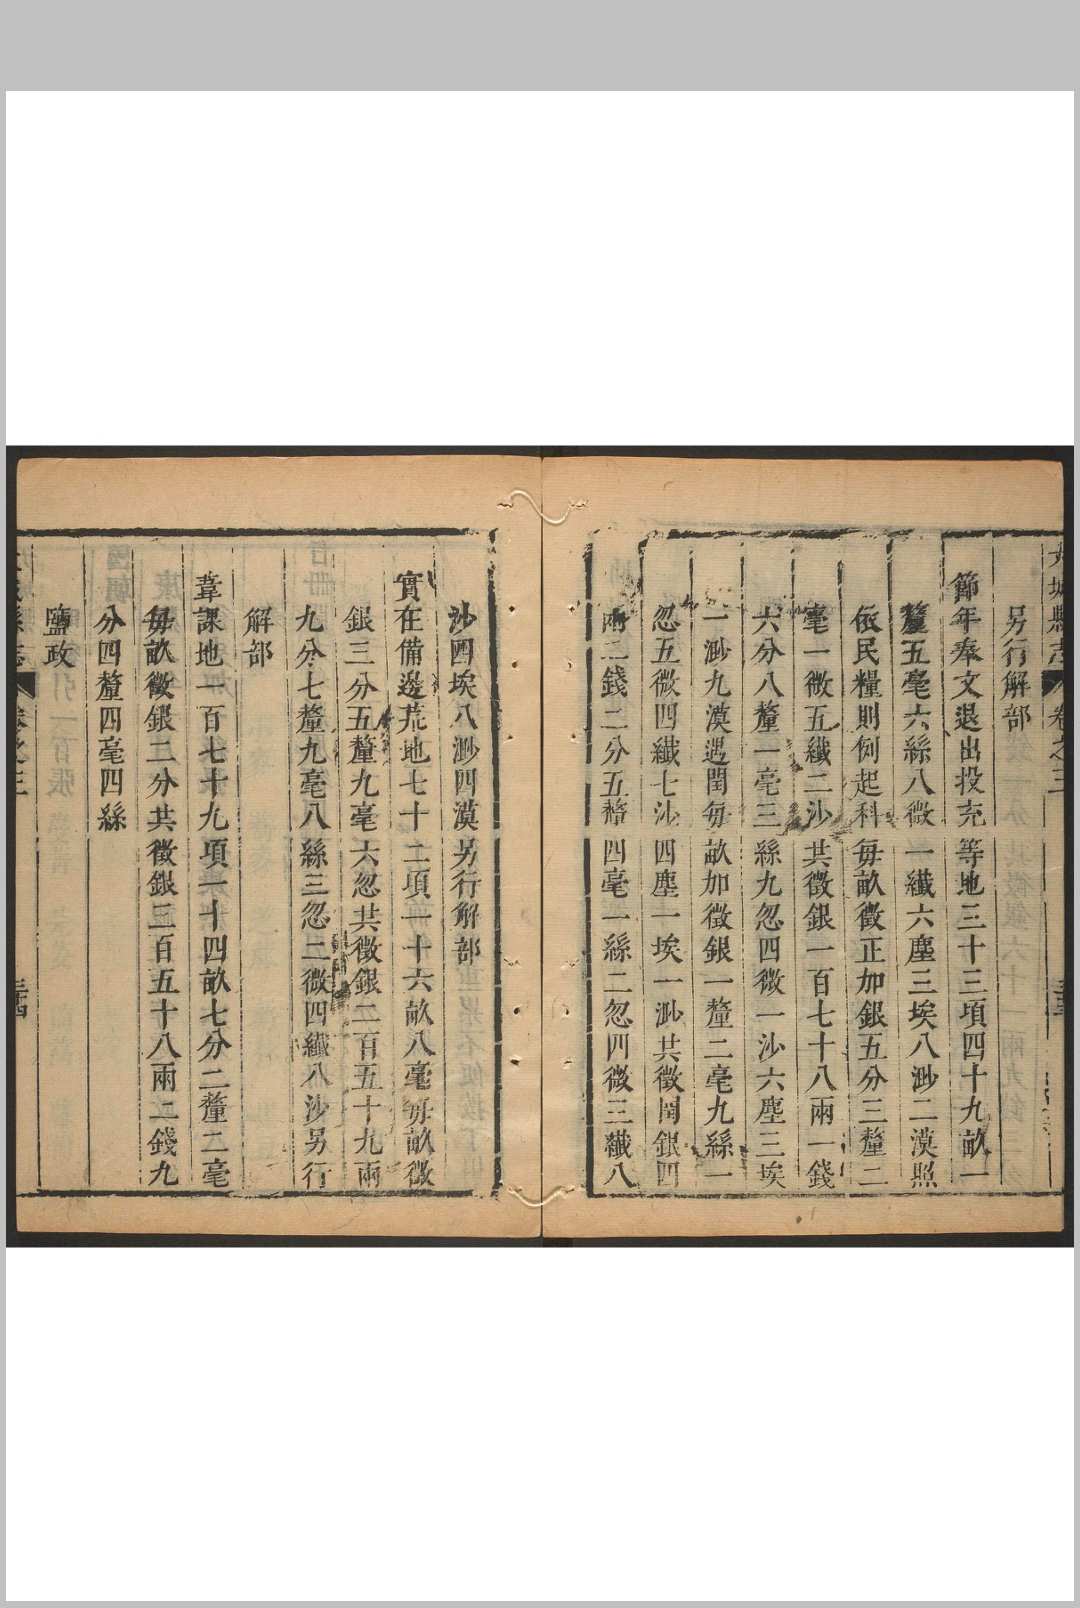 城縣志 卷之三
另行解部
節年奉文退出投充等地三十三項四十九畝一
釐五毫六絲八微一纖六塵三埃八渺二漠照
依民糧則例起科每畝徵正加銀五分三釐二
毫一微五纖二沙共徵銀一百七十八兩一錢
六分八釐一毫三絲九忽四微一沙六塵三埃
一渺九漠遇閏每畝加徵銀一釐二毫九絲一
忽五微四纖七沙四塵一埃一渺共徵閏銀四
兩二錢二分五釐四毫一絲二忽四微三纖八
沙四埃八渺四漠另行解部
實在備邊荒地七十二項一十六畝八毫每畝徵
銀三分五釐九毫六忽共徵銀二百五十九兩
九分七釐九毫八絲三忽二微四纖八沙另行
解部
葦課地一百七十九項一十四畝七分二釐二毫
每畝徵銀二分共徵銀三百五十八兩二錢九
分四釐四毫四絲
鹽政
縣志 卷之三 三十四